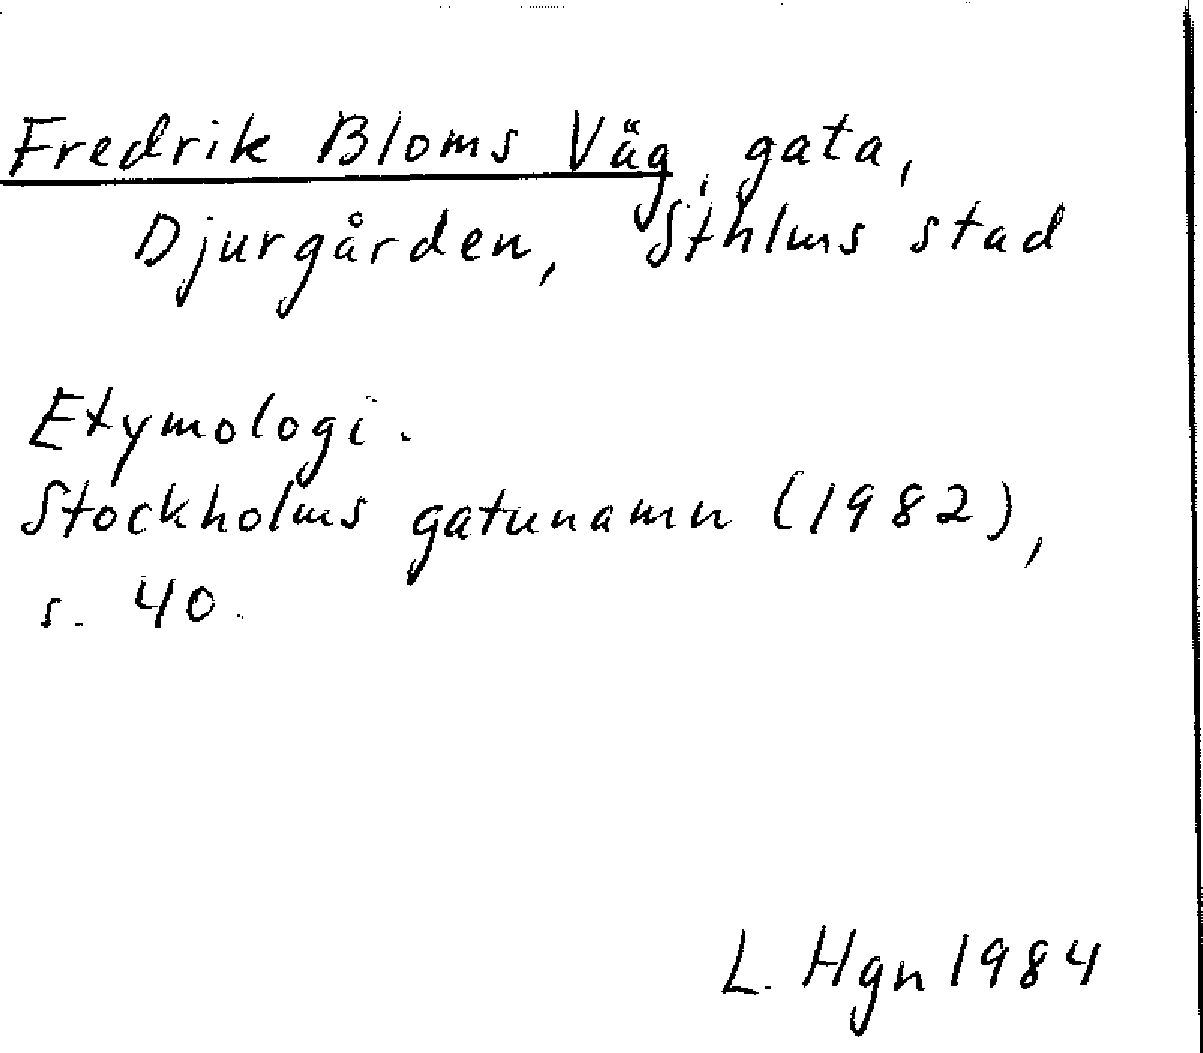 Fredrik Bloms Väg, gata,
Djurgården, Sthlms stad
Etymologi.
Stockholms gatunamn (1982),
s. 40.
L. Hgn 1984